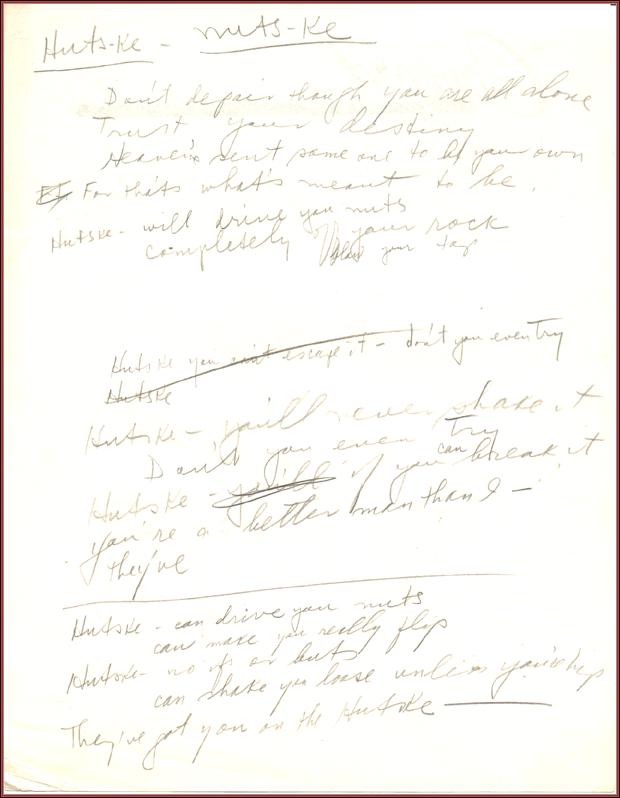 Huts-Ke - nuts-Ke
Don't depair though you are all alone
Trust your destiny
Heaven's sent some one to be your own
For that's what's meant to be.
Hutske - will drive you nuts
completely off your rock
blow your top
Hutske you can't escape it - don't you even try
Hutske
Hutske - you'll never shake it
Don't you even try
Hutske - you'll if you can break it
you're a better man than I -
they've
Hutske - can drive you nuts
can make you really flip
Hutske - no ifs or buts
can shake you loose unless you're hip
They've got you on the Hutske